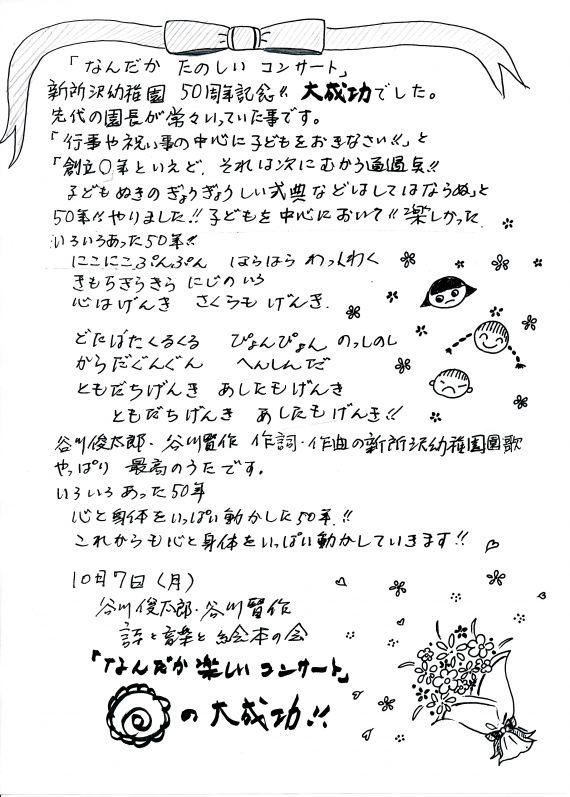 「なんだか たのしい コンサート」
新所沢幼稚園 50周年記念!! 大成功でした。
先代の園長が常々いっていた事です。
「行事や祝い事の中心に子どもをおきなさい!!」と
「創立〇年といえど、それは次にむかう通過点!!
子どもぬきのぎょうぎょうしい式典などはしてはならぬ」と
50年!!やりました!!子どもを中心において!!楽しかった
いろいろあった50年!!
にこにこぷんぷん はらはら わっくわく
きもちきらきら にじのいろ
心はげんき さくらも げんき
どたばたくるくる ぴょんぴょん のっしのし
からだぐんぐん へんしんだ
ともだちげんき あしたもげんき
ともだちげんき あしたもげんき!!
谷川俊太郎・谷川賢作 作詞・作曲の新所沢幼稚園園歌
やっぱり 最高のうたです。
いろいろあった50年
心と身体をいっぱい動かした50年!!
これからも心と身体をいっぱい動かしていきます!!
10月7日(月)
谷川俊太郎・谷川賢作
詩と音楽と絵本の会
「なんだか楽しい コンサート」
の 大成功!!